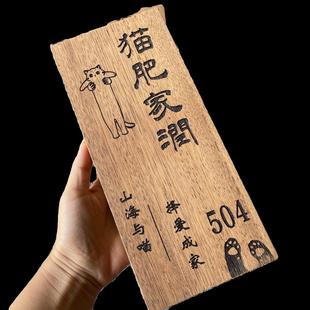 猫肥家潤
山海与喵
择爱成家
504